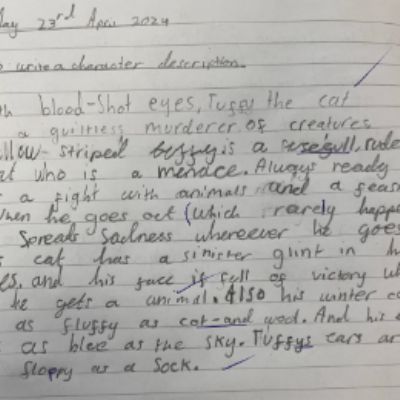 ay 23rd April 2024
write a character description.
th blood-shot eyes, Tuffy the cat
a guiltless murderer of creatures
llow striped is a rude
at who is a menace. Always ready
a fight with animals and a feas
when he goes out (which rarely happe
Spreads Sadness whereever he goes
s cat has a sinister glint in h
es, and his face if full of victory w
he gets a animal. Also his winter c
as fluffy as cot-and wool. And his
as blee as the sky. Tuffys ears ar
floppy as a sock.